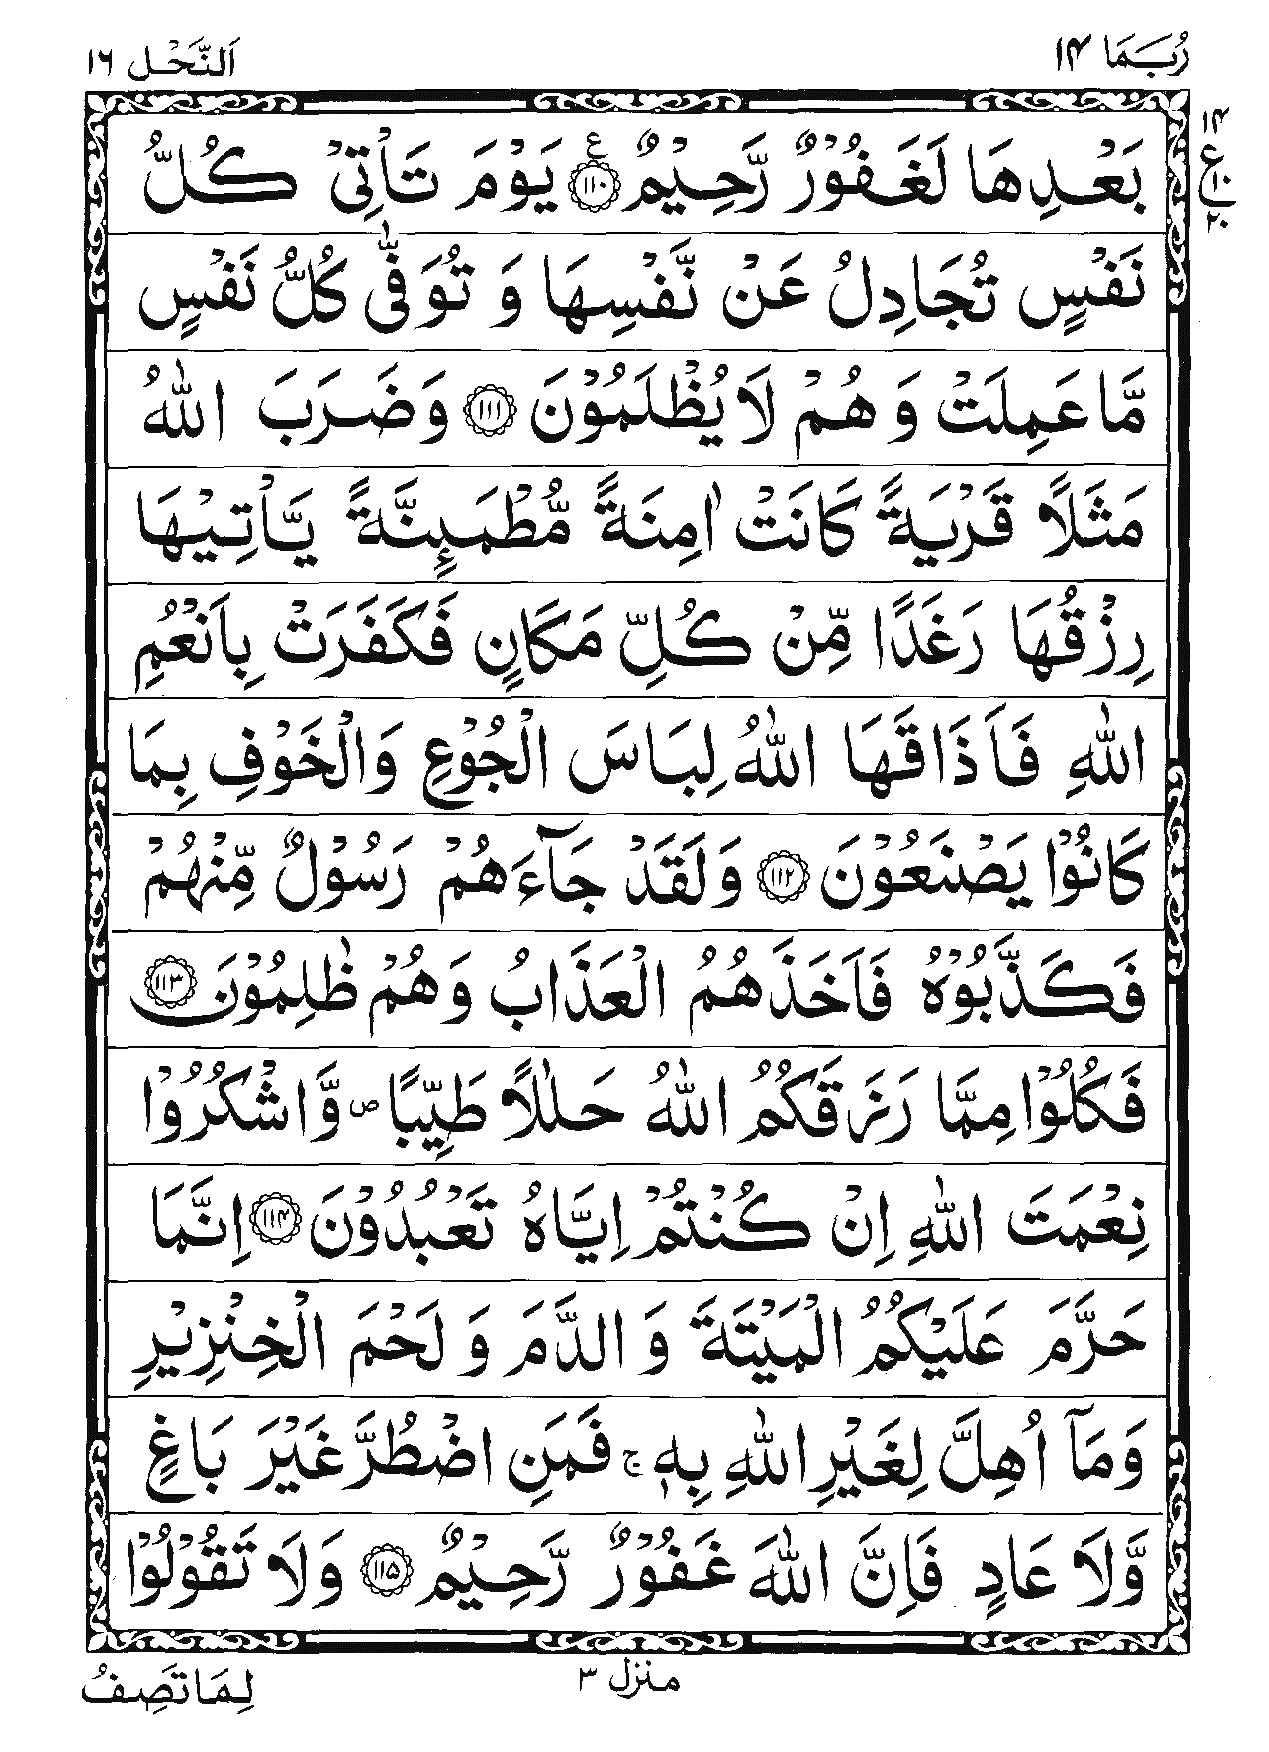 رُبَمَا ۱۴
اَلنَّحْل ۱۶
۱۴
ع
۱۰
۲۰
بَعْدِهَا لَغَفُوْرٌ رَّحِيْمٌ ۝۱۱۰ ع يَوْمَ تَاْتِيْ كُلُّ
نَفْسٍ تُجَادِلُ عَنْ نَّفْسِهَا وَ تُوَفّٰى كُلُّ نَفْسٍ
مَّا عَمِلَتْ وَ هُمْ لَا يُظْلَمُوْنَ ۝۱۱۱ وَضَرَبَ اللّٰهُ
مَثَلًا قَرْيَةً كَانَتْ اٰمِنَةً مُّطْمَىِٕنَّةً يَّاْتِيْهَا
رِزْقُهَا رَغَدًا مِّنْ كُلِّ مَكَانٍ فَكَفَرَتْ بِاَنْعُمِ
اللّٰهِ فَاَذَاقَهَا اللّٰهُ لِبَاسَ الْجُوْعِ وَالْخَوْفِ بِمَا
كَانُوْا يَصْنَعُوْنَ ۝۱۱۲ وَلَقَدْ جَآءَهُمْ رَسُوْلٌ مِّنْهُمْ
فَكَذَّبُوْهُ فَاَخَذَهُمُ الْعَذَابُ وَهُمْ ظٰلِمُوْنَ ۝۱۱۳
فَكُلُوْا مِمَّا رَزَقَكُمُ اللّٰهُ حَلٰلًا طَيِّبًا ص وَّاشْكُرُوْا
نِعْمَتَ اللّٰهِ اِنْ كُنْتُمْ اِيَّاهُ تَعْبُدُوْنَ ۝۱۱۴ اِنَّمَا
حَرَّمَ عَلَيْكُمُ الْمَيْتَةَ وَ الدَّمَ وَ لَحْمَ الْخِنْزِيْرِ
وَمَآ اُهِلَّ لِغَيْرِ اللّٰهِ بِهٖ ج فَمَنِ اضْطُرَّ غَيْرَ بَاغٍ
وَّلَا عَادٍ فَاِنَّ اللّٰهَ غَفُوْرٌ رَّحِيْمٌ ۝۱۱۵ وَلَا تَقُوْلُوْا
منزل ۳
لِمَا تَصِفُ